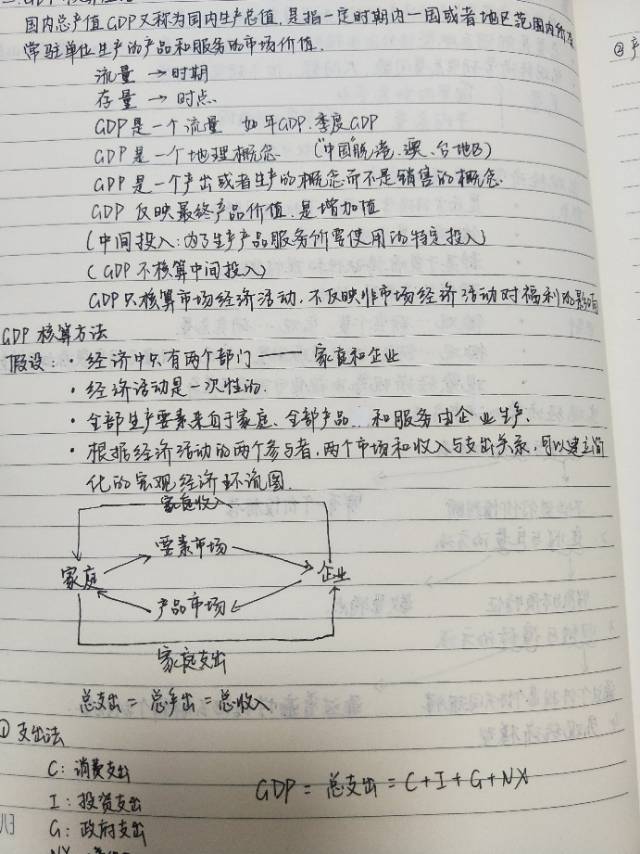 国内总产值GDP又称为国内生产总值,是指一定时期内一国或者地区范围内所有
常驻单位生产的产品和服务的市场价值.
流量 → 时期
存量 → 时点
GDP是一个流量 如年GDP.季度GDP
GDP是一个地理概念
GDP是一个产出或者生产的概念而不是销售的概念.
GDP 反映最终产品价值.是增加值
(中间投入:为了生产产品服务所需使用的特定投入)
(GDP不核算中间投入)
GDP只核算市场经济活动.不反映非市场经济活动对福利的影响
GDP核算方法
假设: · 经济中只有两个部门 —— 家庭和企业
· 经济活动是一次性的.
· 全部生产要素来自于家庭、全部产品 和服务由企业生产.
· 根据经济活动的两个参与者,两个市场和收入与支出关系,可以建立简
化的宏观经济环流图.
家庭收入
要素市场
家庭 企业
产品市场
家庭支出
总支出 = 总产出 = 总收入
① 支出法
C: 消费支出
GDP = 总支出 = C+I+G+NX
I: 投资支出
G: 政府支出
NX
② 产